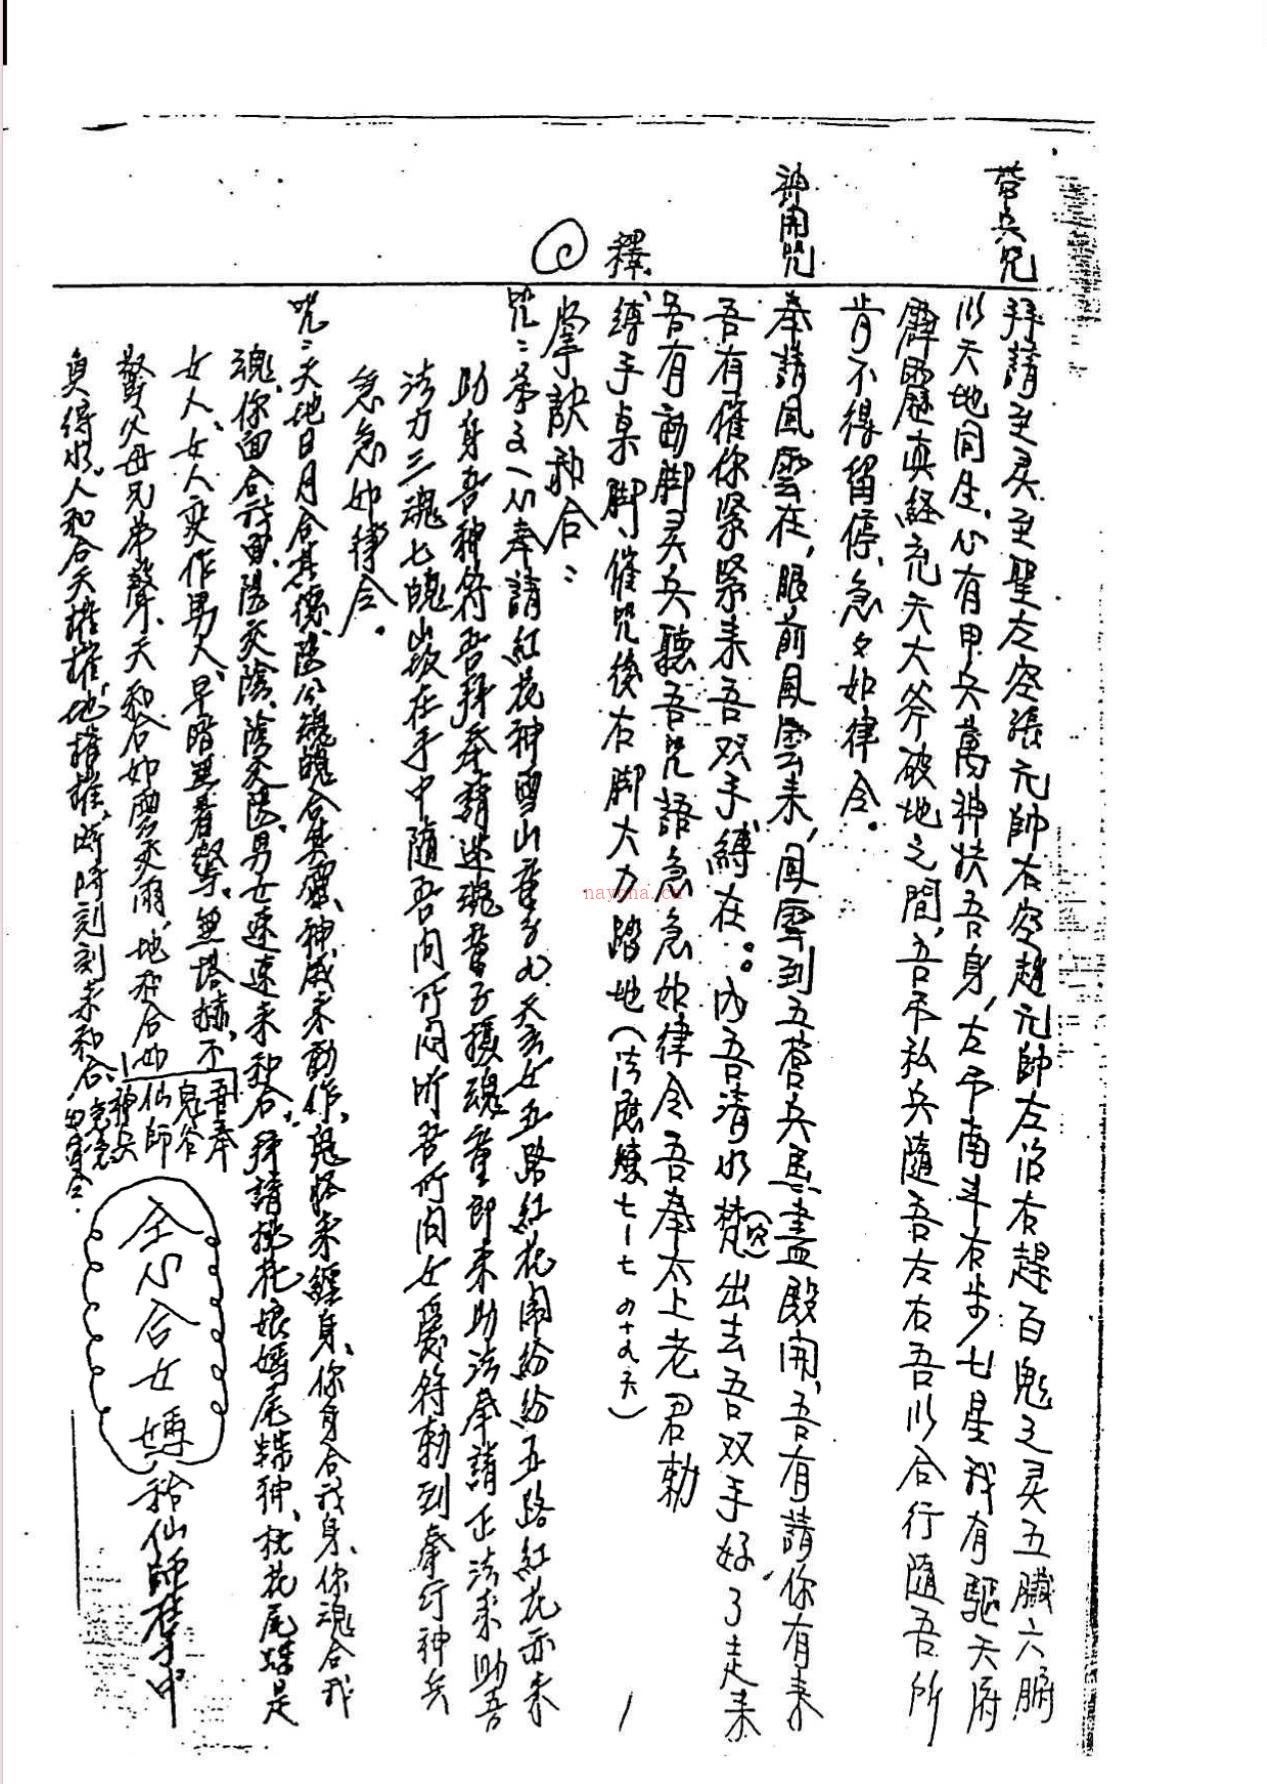 帶兵咒
拜請至灵至聖左空張元帥右空趙元帥左治右趕百鬼之灵五臟六腑
以天地同生心有甲兵萬神扶吾身,左弔南斗右步七星我有驅天府
霹靂真経元天大斧破地之間,吾弔私兵隨吾左右吾以合行隨吾所
肯不得留停急々如律令。
神開咒
奉請風雲在,眼前風雲来,風雲到五营兵馬盡殿開,吾有請你有来
吾有催你緊緊来吾双手縛在。內吾清水梵出去吾双手好了走来
吾有動脚灵兵聽吾咒語急急如律令吾奉太上老君勅
釋
縛手桌脚催咒後右脚大力踏地(法应練七-七四十九天)
掌訣和合:
咒:弟子一心奉請紅花神雪山童子九天玄女五路紅花開紛紛五路紅花亦来
助身吾神符吾拜奉請迷魂童子攝魂童即来助法奉請正法来助吾
法力三魂七魄收在手中隨吾问所问所吾所问女愛符勅到奉行神兵
急急如律令。
咒:天地日月合其德,陰公魂魄合其靈,神威来動作,鬼怪来經身,你身合我身,你魂合我
魂,你面合我面,陽交陰,陰交陽,男女速速来和合,拜請桃花娘媽尾蝶神,桃花尾蝶是
女人,女人变作男人,早暗異著聲,無塔摵,不
聲父母兄弟聲,天和合如雲交雨,地和合如
魚得水。人和合天摧摧地摧摧,時時刻刻来和合
吾奉
鬼谷
仙師
神兵
急急
如律令
全心合女嫥
於仙師掌中
nayona.cn